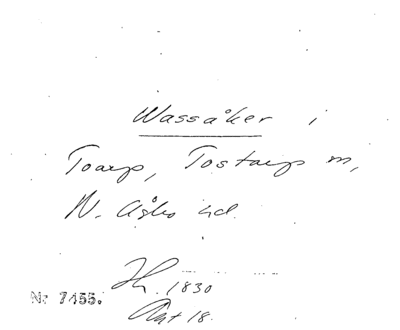 Wassåker i
Toarp, Tostarp m,
N. Åsbo hd.
1830
Nr 7455.
18.